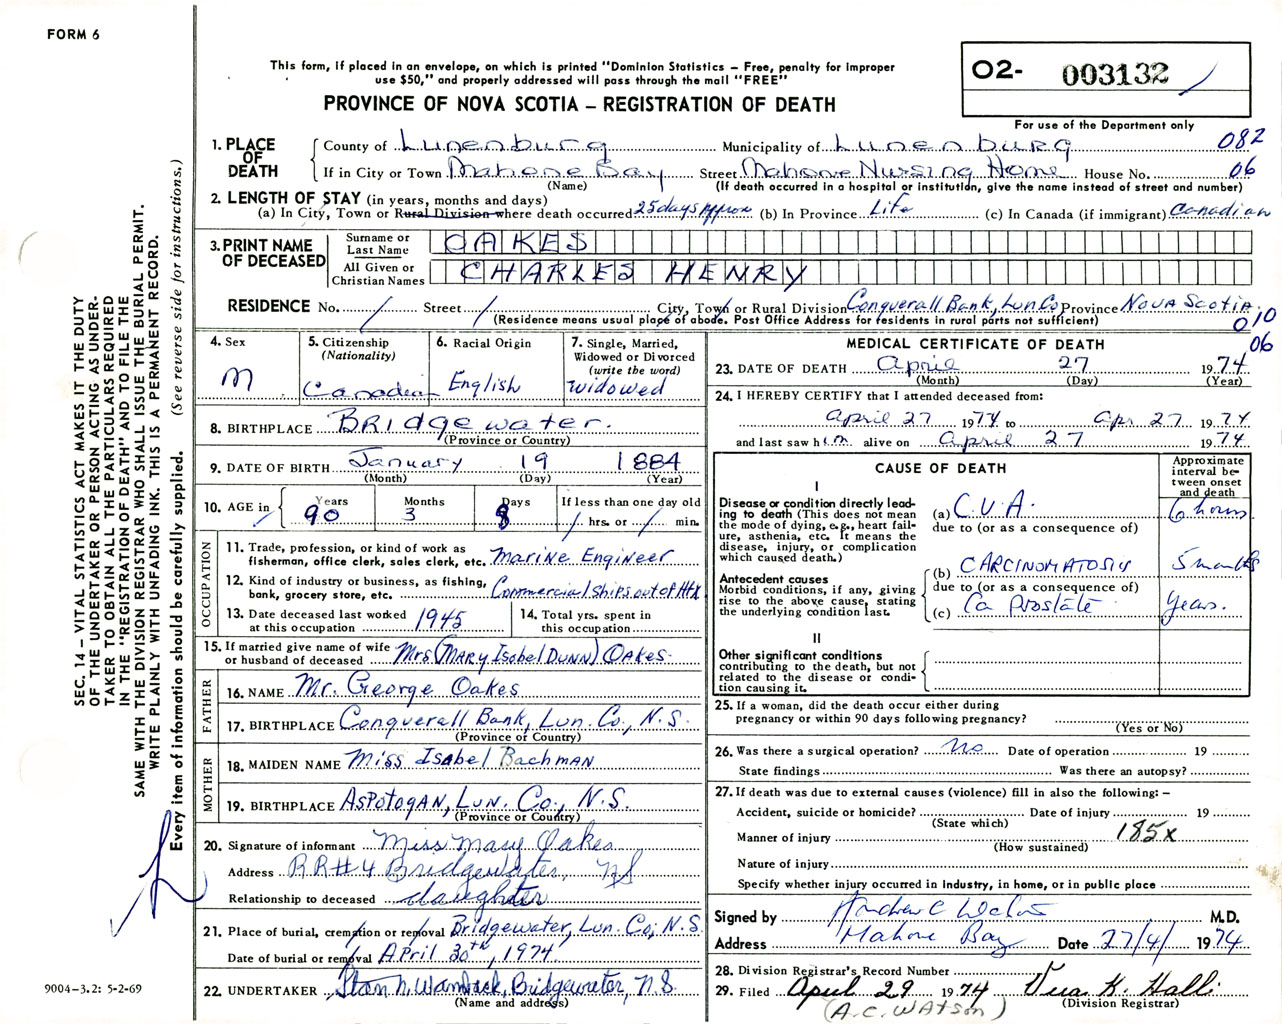 FORM 6
This form, if placed in an envelope, on which is printed "Dominion Statistics – Free, penalty for improper
use $50," and properly addressed will pass through the mail "FREE"
PROVINCE OF NOVA SCOTIA – REGISTRATION OF DEATH
O2- 003132
For use of the Department only
1. PLACE OF DEATH
County of Lunenburg Municipality of Lunenburg 082
If in City or Town Mahone Bay Street Mahone Nursing Home House No. 06
(Name) (If death occurred in a hospital or institution, give the name instead of street and number)
2. LENGTH OF STAY (in years, months and days)
(a) In City, Town or Rural Division where death occurred 25 days Approx (b) In Province Life (c) In Canada (if immigrant) Canadian
3. PRINT NAME OF DECEASED
Surname or Last Name OAKES
All Given or Christian Names CHARLES HENRY
RESIDENCE No. / Street / City, Town or Rural Division Conquerall Bank, Lun Co Province NOVA SCOTIA
(Residence means usual place of abode. Post Office Address for residents in rural parts not sufficient) 010
06
4. Sex M
5. Citizenship (Nationality) Canadian
6. Racial Origin English
7. Single, Married, Widowed or Divorced (write the word) widowed
8. BIRTHPLACE Bridgewater.
(Province or Country)
9. DATE OF BIRTH January 19 1884
(Month) (Day) (Year)
10. AGE in Years 90 Months 3 Days 8 If less than one day old / hrs. or / min.
OCCUPATION
11. Trade, profession, or kind of work as fisherman, office clerk, sales clerk, etc. Marine Engineer
12. Kind of industry or business, as fishing, bank, grocery store, etc. Commercial ships out of Hfx
13. Date deceased last worked at this occupation 1945
14. Total yrs. spent in this occupation
15. If married give name of wife or husband of deceased Mrs (Mary Isobel DUNN) OAKES
FATHER
16. NAME Mr. George Oakes
17. BIRTHPLACE Conquerall Bank, Lun. Co., N.S.
(Province or Country)
MOTHER
18. MAIDEN NAME Miss Isabel Bachman
19. BIRTHPLACE ASPOTOGAN, Lun. Co., N.S.
(Province or Country)
20. Signature of informant Miss Mary Oakes
Address RR#4 Bridgewater, NS
Relationship to deceased daughter
21. Place of burial, cremation or removal Bridgewater, Lun. Co, N.S.
Date of burial or removal April 30th, 1974
22. UNDERTAKER Bridgewater, N.S.
(Name and address)
MEDICAL CERTIFICATE OF DEATH
23. DATE OF DEATH April 27 1974
(Month) (Day) (Year)
24. I HEREBY CERTIFY that I attended deceased from:
April 27 1974 to Apr 27 1974
and last saw him alive on April 27 1974
CAUSE OF DEATH
Approximate interval between onset and death
I
Disease or condition directly leading to death (This does not mean the mode of dying, e.g., heart failure, asthenia, etc. It means the disease, injury, or complication which caused death.)
(a) C.V.A. 6 hours
due to (or as a consequence of)
Antecedent causes
Morbid conditions, if any, giving rise to the above cause, stating the underlying condition last.
(b) CARCINOMATOSIS 5 months
due to (or as a consequence of)
(c) Ca Prostate years.
II
Other significant conditions
contributing to the death, but not related to the disease or condition causing it.
25. If a woman, did the death occur either during pregnancy or within 90 days following pregnancy?
(Yes or No)
26. Was there a surgical operation? No Date of operation 19
State findings Was there an autopsy?
27. If death was due to external causes (violence) fill in also the following: –
Accident, suicide or homicide? Date of injury 19
(State which)
Manner of injury 185X
(How sustained)
Nature of injury
Specify whether injury occurred in industry, in home, or in public place
Signed by Andrew C Watson M.D.
Address Mahone Bay Date 27/4/ 1974
28. Division Registrar's Record Number
29. Filed April 29 1974 Vera K. Halli
(Division Registrar)
(A.C. WATSON)
SEC. 14 – VITAL STATISTICS ACT MAKES IT THE DUTY
OF THE UNDERTAKER OR PERSON ACTING AS UNDER-
TAKER TO OBTAIN ALL THE PARTICULARS REQUIRED
IN THE "REGISTRATION OF DEATH" AND TO FILE THE
SAME WITH THE DIVISION REGISTRAR WHO SHALL ISSUE THE BURIAL PERMIT.
WRITE PLAINLY WITH UNFADING INK. THIS IS A PERMANENT RECORD.
Every item of information should be carefully supplied. (See reverse side for instructions.)
9004-3.2: 5-2-69